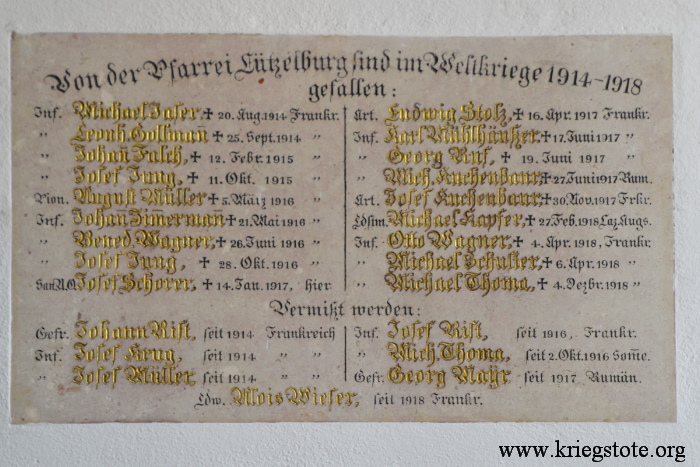 Von der Pfarrei Lützelburg sind im Weltkriege 1914-1918
gefallen:
Inf. Michael Jaser, ✝ 20. Aug. 1914 Frankr.
" Leonh. Gollmañ ✝ 25. Sept. 1914 "
" Johañ Falch, ✝ 12. Febr. 1915 "
" Josef Jung, ✝ 11. Okt. 1915 "
Pion. August Müller ✝ 5. März 1916 "
Inf. Johañ Zim̄ermañ ✝ 21. Mai 1916 "
" Bened. Wagner, ✝ 26. Juni 1916 "
" Josef Jung, ✝ 28. Okt. 1916 "
San.U.O. Josef Schorer, ✝ 14. Jan. 1917, hier
Art. Ludwig Stolz, ✝ 16. Apr. 1917 Frankr.
Inf. Karl Mühlhäußer, ✝ 17. Juni 1917 "
" Georg Ruf, ✝ 19. Juni 1917 "
" Mich. Kuchenbaur ✝ 27. Juni 1917 Rum.
Art. Josef Kuchenbaur, ✝ 30. Nov. 1917 Frkr.
Ldstm. Michael Kapfer, ✝ 27. Feb. 1918 Laz. Augs.
Inf. Otto Wagner, ✝ 4. Apr. 1918, Frankr.
" Michael Schuster, ✝ 6. Apr. 1918 "
" Michael Thoma, ✝ 4. Dezbr. 1918 "
Vermißt werden:
Gefr. Johann Rist, seit 1914 Frankreich
Inf. Josef Krug, seit 1914 " "
" Josef Müller seit 1914 " "
Inf. Josef Rist, seit 1916, Frankr.
" Mich. Thoma, seit 2. Okt. 1916 Som̄e.
Gefr. Georg Mayr seit 1917 Rumän.
Ldw. Alois Wieser, seit 1918 Frankr.
www.kriegstote.org